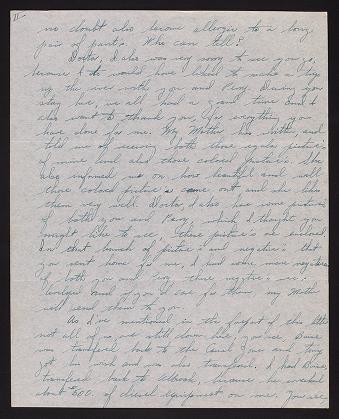 II
no doubt also become allergic to a long
pair of pants. Who can tell?
Doctor, I also was very sorry to see you go,
because I would have liked to make a trip
up the river with you and Percy. During your
stay here, we all had a good time and I
also want to thank you, for everything you
have done for me. My Mother has written and
told me of receiving both those regular pictures
of mine and also those colored pictures. She
also informed me on how beautiful and well
those colored pictures came out and she likes
them very well. Doctor, I also have some pictures
of both you and Percy, which I thought you
might like to see, these pictures are enclosed.
In that bunch of pictures and negatives that
you sent home for me, I had some more negatives
of both you and Percy these negatives
you care for them my Mother
will send them to you.
As I've mentioned in the first part of this letter
not all of us are still down here,
was transfered back to the Canal Zone and
got his wish and was also transfered. I had
transfered back to Albrook, because he
about $500. of diesel equipment on me. You see